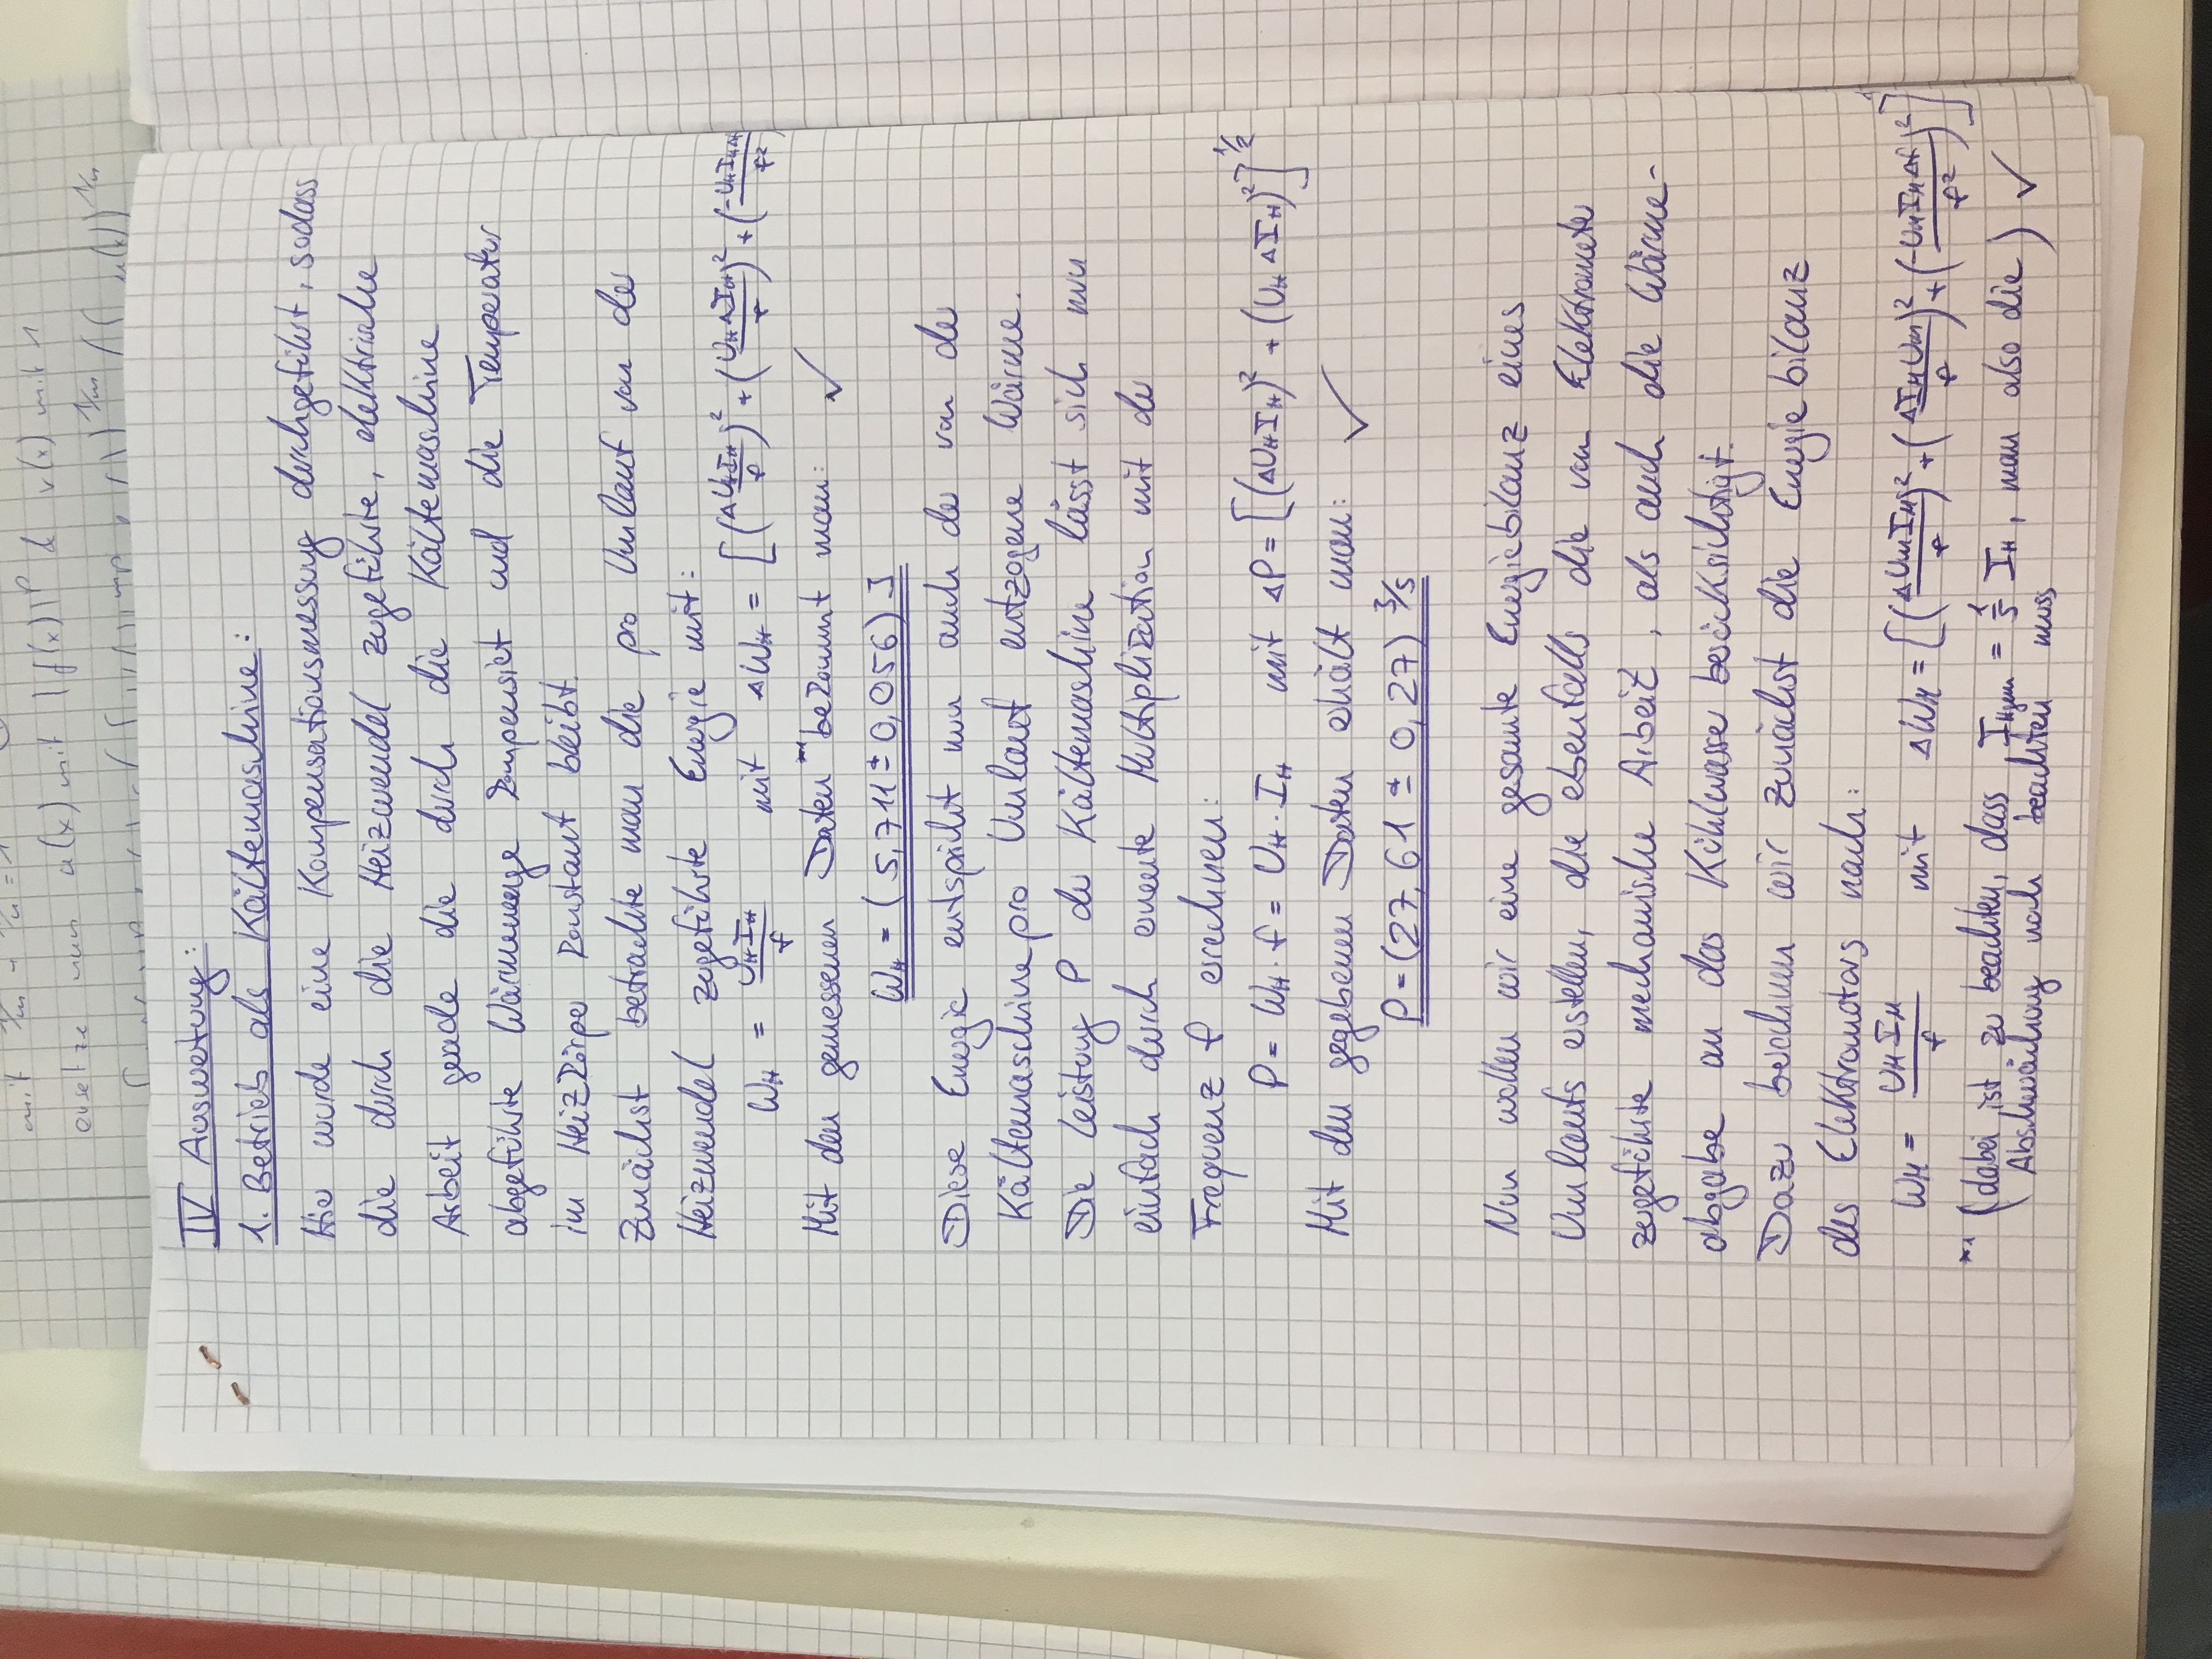 mit 1/m + 1/n = 1
ersetze nun u(x) mit |f(x)|^p & v(x) mit 1
IV Auswertung:
1. Betrieb als Kältemaschine:
Hier wurde eine Kompensationsmessung durchgeführt, sodass
die durch die Heizwendel zugeführte, elektrische
Arbeit gerade die durch die Kältemaschine
abgeführte Wärmemenge kompensiert und die Temperatur
im Heizkörper konstant bleibt.
Zunächst betrachte man die pro Umlauf von der
Heizwendel zugeführte Energie mit:
W_H = U_H I_H / f mit ΔW_H = [(ΔU_H I_H / f)² + (U_H ΔI_H / f)² + (-U_H I_H Δf / f²)
Mit den gemessenen Daten *1 bekommt man: ✓
W_H = (5,711 ± 0,056) J
Diese Energie entspricht nun auch der von der
Kältemaschine pro Umlauf entzogene Wärme.
Die Leistung P der Kältemaschine lässt sich nun
einfach durch erneute Multiplikation mit der
Frequenz f errechnen:
P = W_H · f = U_H · I_H mit ΔP = [(ΔU_H I_H)² + (U_H ΔI_H)²]^1/2
Mit den gegebenen Daten erhält man: ✓
P = (27,61 ± 0,27) J/s
Nun wollen wir eine gesamte Energiebilanz eines
Umlaufs erstellen, die ebenfalls die von Elektrometer
zugeführte mechanische Arbeit, als auch die Wärme-
abgabe an das Kühlwasser berücksichtigt.
Dazu berechnen wir zunächst die Energiebilanz
des Elektromotors nach:
W_M = U_M I_M / f mit ΔW_M = [(ΔU_M I_M / f)² + (ΔI_M U_M / f)² + (-U_M I_M Δf / f²)²]
*1 (dabei ist zu beachten, dass I_Hgem = 1/5 I_H, man also die) ✓
Abschwächung noch beachten muss